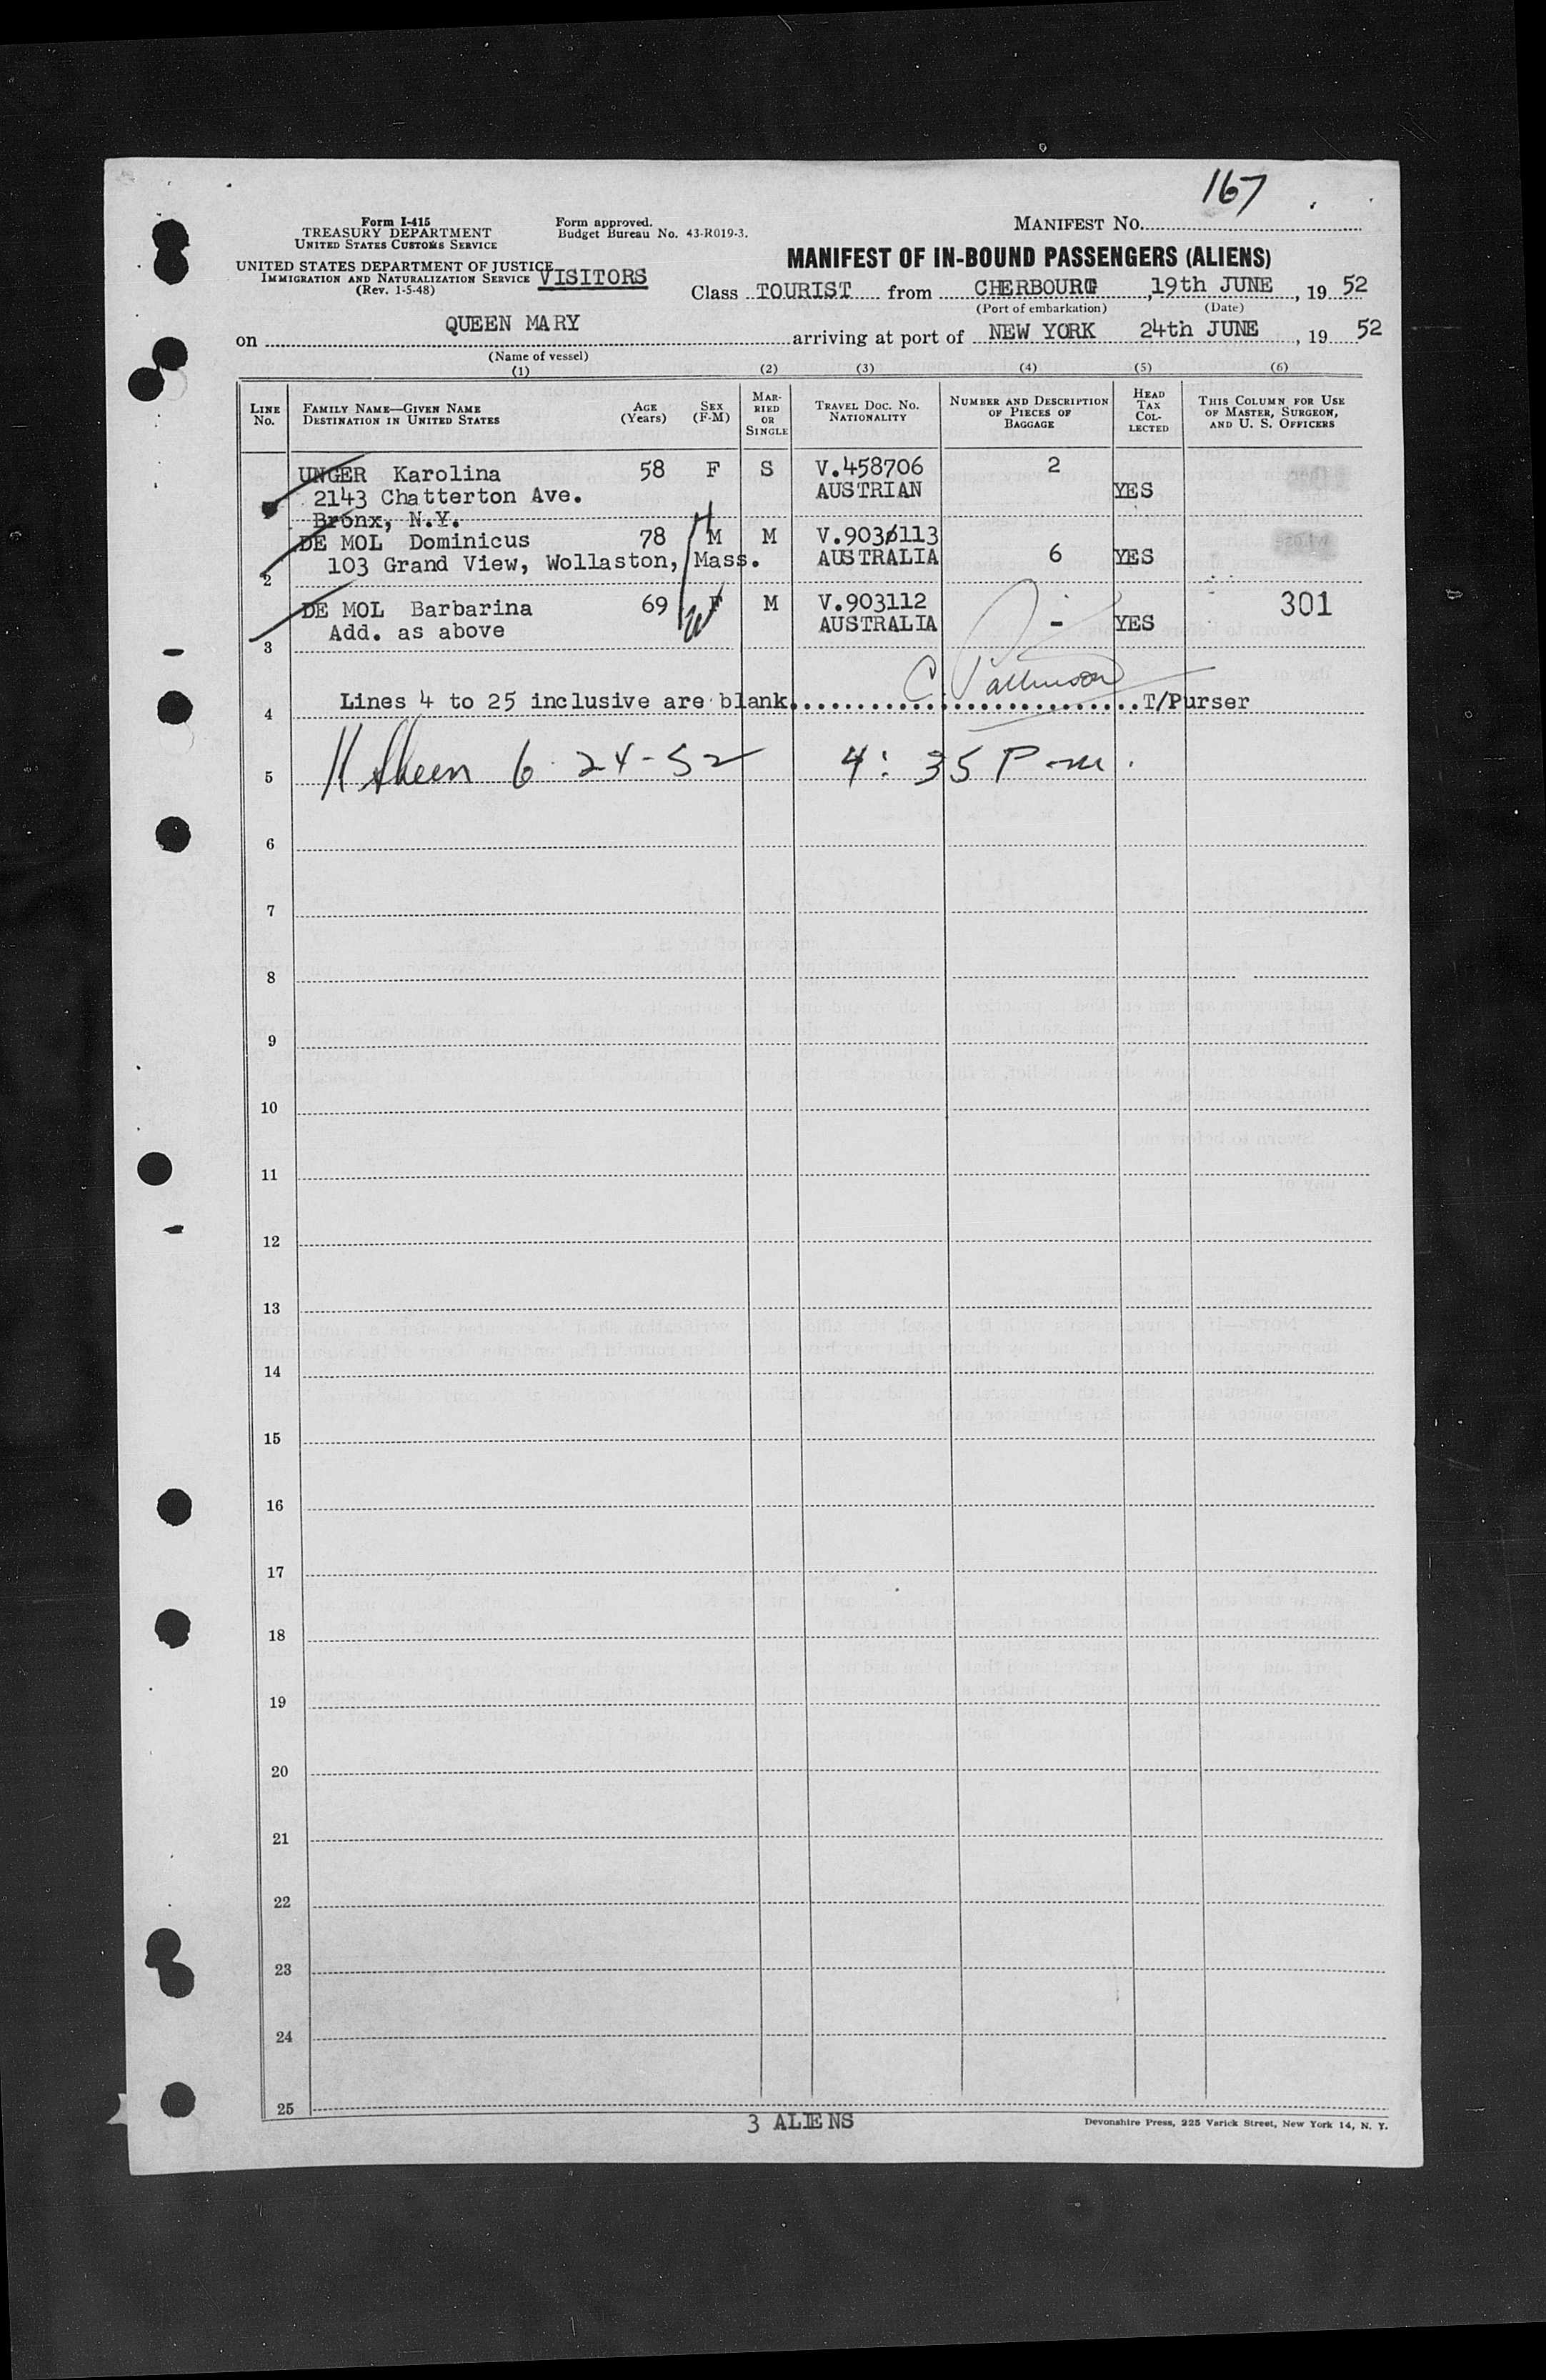 167
Form I-415
TREASURY DEPARTMENT
UNITED STATES CUSTOMS SERVICE
Form approved.
Budget Bureau No. 43-R019-3.
MANIFEST No.
UNITED STATES DEPARTMENT OF JUSTICE
IMMIGRATION AND NATURALIZATION SERVICE
(Rev. 1-5-48)
VISITORS
MANIFEST OF IN-BOUND PASSENGERS (ALIENS)
Class TOURIST from CHERBOURG, 19th JUNE, 19 52
(Port of embarkation) (Date)
on QUEEN MARY arriving at port of NEW YORK 24th JUNE, 19 52
(Name of vessel)
(1) (2) (3) (4) (5) (6)
LINE No. FAMILY NAME—GIVEN NAME DESTINATION IN UNITED STATES AGE (Years) SEX (F-M) MARRIED OR SINGLE TRAVEL DOC. No. NATIONALITY NUMBER AND DESCRIPTION OF PIECES OF BAGGAGE HEAD TAX COLLECTED THIS COLUMN FOR USE OF MASTER, SURGEON, AND U. S. OFFICERS
UNGER Karolina 58 F S V.458706 2
2143 Chatterton Ave. AUSTRIAN YES
Bronx, N.Y.
DE MOL Dominicus 78 M M V.9036113
103 Grand View, Wollaston, Mass. AUSTRALIA 6 YES
2
DE MOL Barbarina 69 F M V.903112 301
Add. as above AUSTRALIA - YES
3
Lines 4 to 25 inclusive are blank T/Purser
4
6-24-52 4:35 P.m.
5
6
7
8
9
10
11
12
13
14
15
16
17
18
19
20
21
22
23
24
25
3 ALIENS
Devonshire Press, 225 Varick Street, New York 14, N. Y.